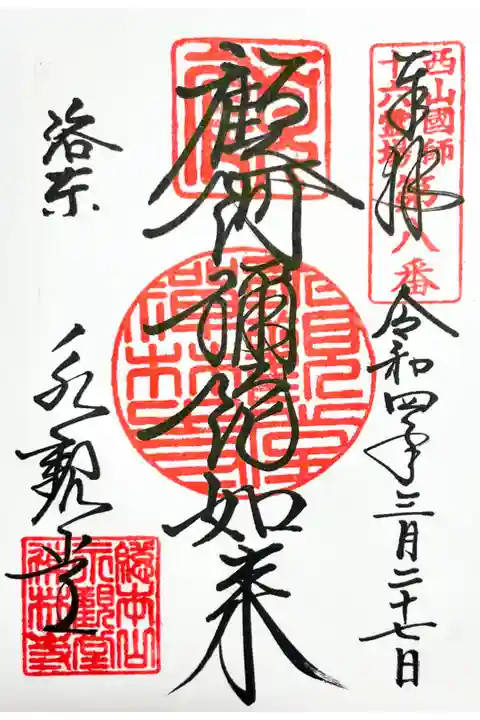 西山國師
十六霊場 第八番
奉拝
令和四年三月二十七日
顧阿彌陀如来
洛东
永観堂
總本山
永觀堂
禅林寺